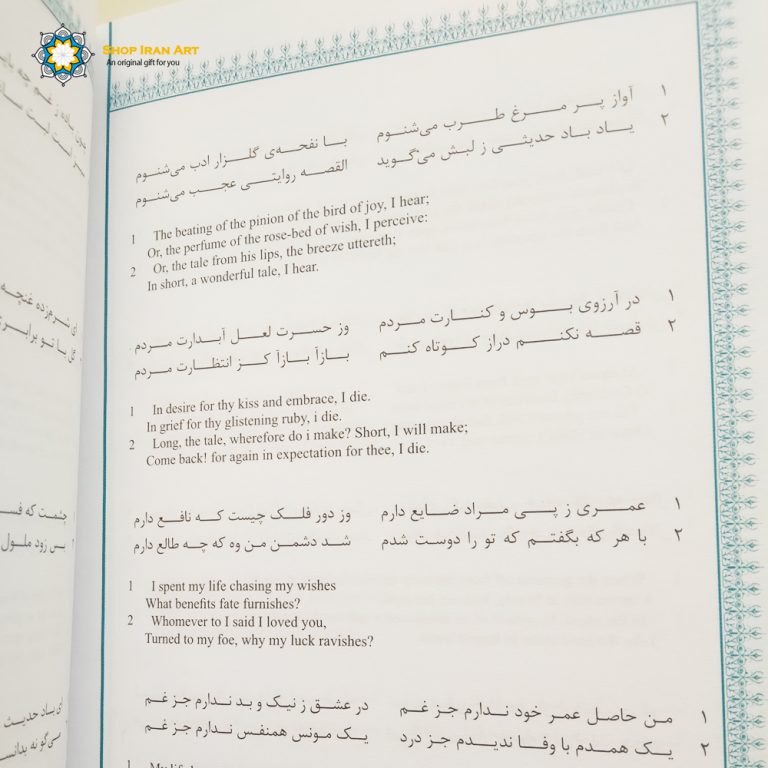 SHOP IRAN ART
An original gift for you
۱ آواز پر مرغ طرب می‌شنوم با نفحه‌ی گلزار ادب می‌شنوم
۲ یاد باد حدیثی ز لبش می‌گوید القصه روایتی عجب می‌شنوم
1 The beating of the pinion of the bird of joy, I hear;
Or, the perfume of the rose-bed of wish, I perceive:
2 Or, the tale from his lips, the breeze uttereth;
In short, a wonderful tale, I hear.
۱ در آرزوی بوس و کنارت مردم وز حسرت لعل آبدارت مردم
۲ قصه نکنم دراز کوتاه کنم بازآ بازآ کز انتظارت مردم
1 In desire for thy kiss and embrace, I die.
In grief for thy glistening ruby, i die.
2 Long, the tale, wherefore do i make? Short, I will make;
Come back! for again in expectation for thee, I die.
۱ عمری ز پی مراد ضایع دارم وز دور فلک چیست که نافع دارم
۲ با هر که بگفتم که تو را دوست شدم شد دشمن من وه که چه طالع دارم
1 I spent my life chasing my wishes
What benefits fate furnishes?
2 Whomever to I said I loved you,
Turned to my foe, why my luck ravishes?
۱ من حاصل عمر خود ندارم جز غم در عشق ز نیک و بد ندارم جز غم
۲ یک همدم با وفا ندیدم جز درد یک مونس همنفس ندارم جز غم
ای شرم‌زده غنچه
گل با تو برابری
چشمت که فسـ
بس زود ملول
ای باد حدیث